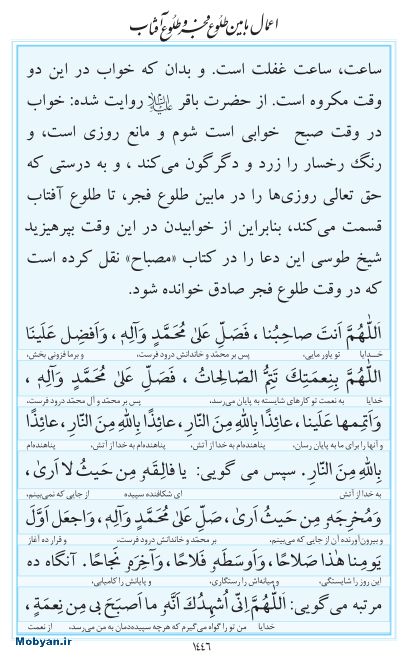 اعمال مابین طلوع فجر و طلوع آفتاب
ساعت، ساعت غفلت است. و بدان که خواب در این دو
وقت مکروه است. از حضرت باقر علیه‌السلام روایت شده: خواب
در وقت صبح خوابی است شوم و مانع روزی است، و
رنگ رخسار را زرد و دگرگون می‌کند ، و به درستی که
حق تعالی روزی‌ها را در مابین طلوع فجر، تا طلوع آفتاب
قسمت می‌کند، بنابراین از خوابیدن در این وقت بپرهیزید
شیخ طوسی این دعا را در کتاب «مصباح» نقل کرده است
که در وقت طلوع فجر صادق خوانده شود.
اَللّٰهُمَّ اَنتَ صاحِبُنا ، فَصَلِّ عَلیٰ مُحَمَّدٍ وَآلِهِ ، وَاَفضِل عَلَینَا
خـدایا تو یاور مایی، پس بر محمّد و خاندانش درود فرست، و بر ما فزونی بخش،
اَللّٰهُمَّ بِنِعمَتِكَ تَتِمُّ الصّالِحاتُ ، فَصَلِّ عَلیٰ مُحَمَّدٍ وَآلِهِ ،
خدایا به نعمت تو کارهای شایسته به پایان می‌رسد، پس بر محمّد و آل محمّد درود فرست،
وَاَتمِمها عَلَینا ، عائِذًا بِاللّٰهِ مِنَ النّارِ، عائِذًا بِاللّٰهِ مِنَ النّارِ، عائِذًا
و آنها را برای ما به پایان رسان، پناهنده‌ام به خدا از آتش، پناهنده‌ام به خدا از آتش، پناهنده‌ام
بِاللّٰهِ مِنَ النّارِ. سپس می گویی: یا فالِقَهُ مِن حَیثُ لا اَریٰ ،
به خدا از آتش ای شکافنده سپیده از جایی که نمی‌بینم،
وَمُخرِجَهُ مِن حَیثُ اَریٰ ، صَلِّ عَلیٰ مُحَمَّدٍ وَآلِهِ، وَاجعَل اَوَّلَ
و بیرون‌آورنده آن از جایی که می‌بینم، بر محمّد و خاندانش درود فرست، و قرار ده آغاز
یَومِنا هٰذا صَلاحًا ، وَاَوسَطَهُ فَلاحًا ، وَآخِرَهُ نَجاحًا . آنگاه ده
این روز را شایستگی، و میانه‌اش را رستگاری، و پایانش را کامیابی،
مرتبه می‌گویی: اَللّٰهُمَّ اِنّی اُشهِدُكَ اَنَّهُ ما اَصبَحَ بی مِن نِعمَةٍ ،
خدایا من تو را گواه می‌گیرم که هرچه سپیده‌دمان به من می‌رسد، از نعمت
Mobyan.ir
۱٤٤٦